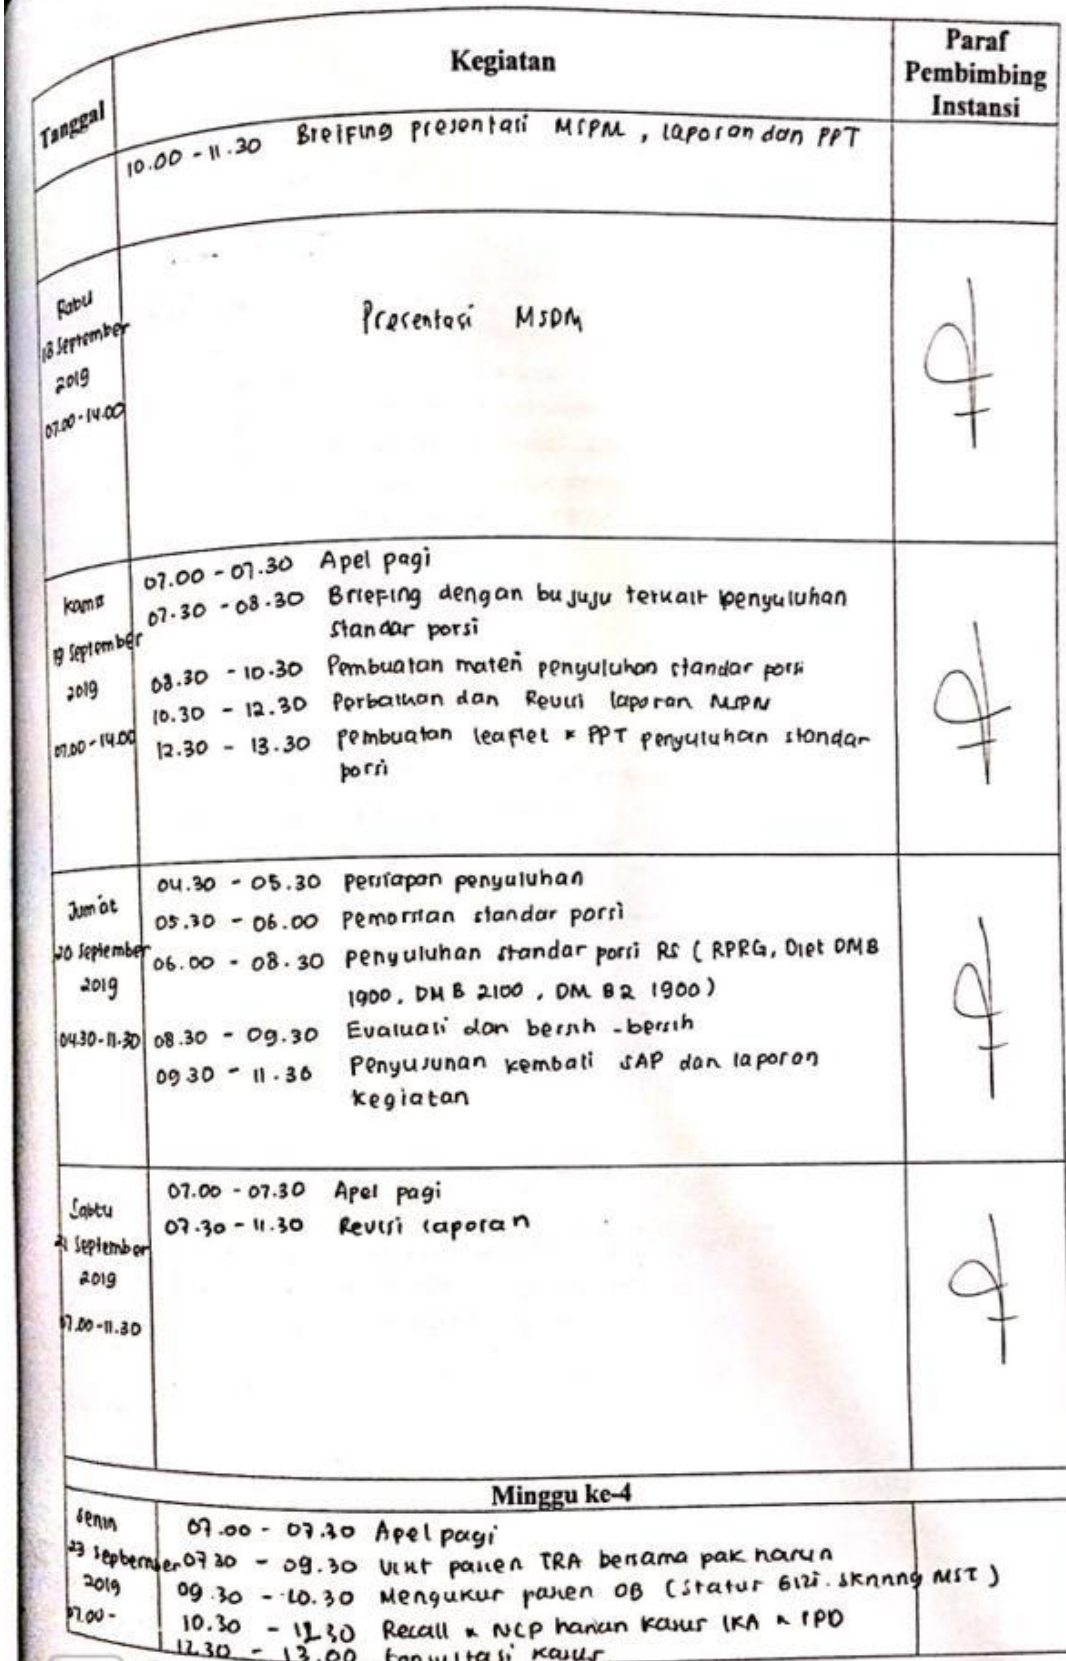 Tanggal
Kegiatan
Paraf
Pembimbing
Instansi
10.00 - 11.30 Breifing presentasi MSPM, laporan dan PPT
Rabu
18 September
2019
07.00 - 14.00
Presentasi MSDM
Kamis
19 September
2019
07.00 - 14.00
07.00 - 07.30 Apel pagi
07.30 - 08.30 Briefing dengan bu juju terkait penyuluhan
standar porsi
08.30 - 10.30 Pembuatan materi penyuluhan standar porsi
10.30 - 12.30 Perbaikan dan Revisi laporan MSPM
12.30 - 13.30 Pembuatan leaflet & PPT penyuluhan standar
porsi
Jum'at
20 September
2019
04.30 - 11.30
04.30 - 05.30 Persiapan penyuluhan
05.30 - 06.00 Pemorsian standar porsi
06.00 - 08.30 penyuluhan standar porsi RS (RPRG, Diet DMB
1900, DM B 2100, DM B2 1900)
08.30 - 09.30 Evaluasi dan bersih - bersih
09.30 - 11.30 Penyusunan kembali SAP dan laporan
kegiatan
Sabtu
21 September
2019
07.00 - 11.30
07.00 - 07.30 Apel pagi
07.30 - 11.30 Revisi laporan
Minggu ke-4
Senin
23 September
2019
07.00 -
07.00 - 07.30 Apel pagi
07.30 - 09.30 Visit pasien TRA bersama pak harun
09.30 - 10.30 Mengukur pasien OB (Status Gizi. Skrining MST)
10.30 - 12.30 Recall & NCP harian kasus IKA & IPD
12.30 - 13.00 Konsultasi kasus